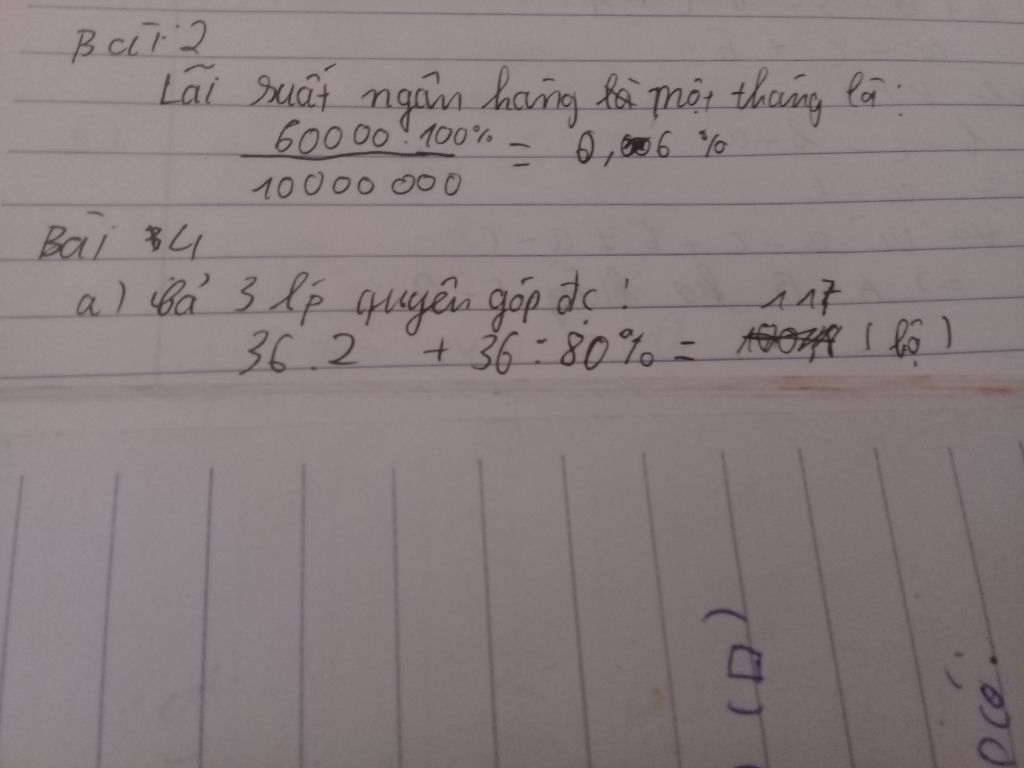 Bài 2
Lãi suất ngân hàng là một tháng là:
60000.100% / 10000000 = 0,006 %
Bài 4
a) Cả 3 lớp quyên góp đc:
36.2 + 36:80% = 117 (bộ)
(D)